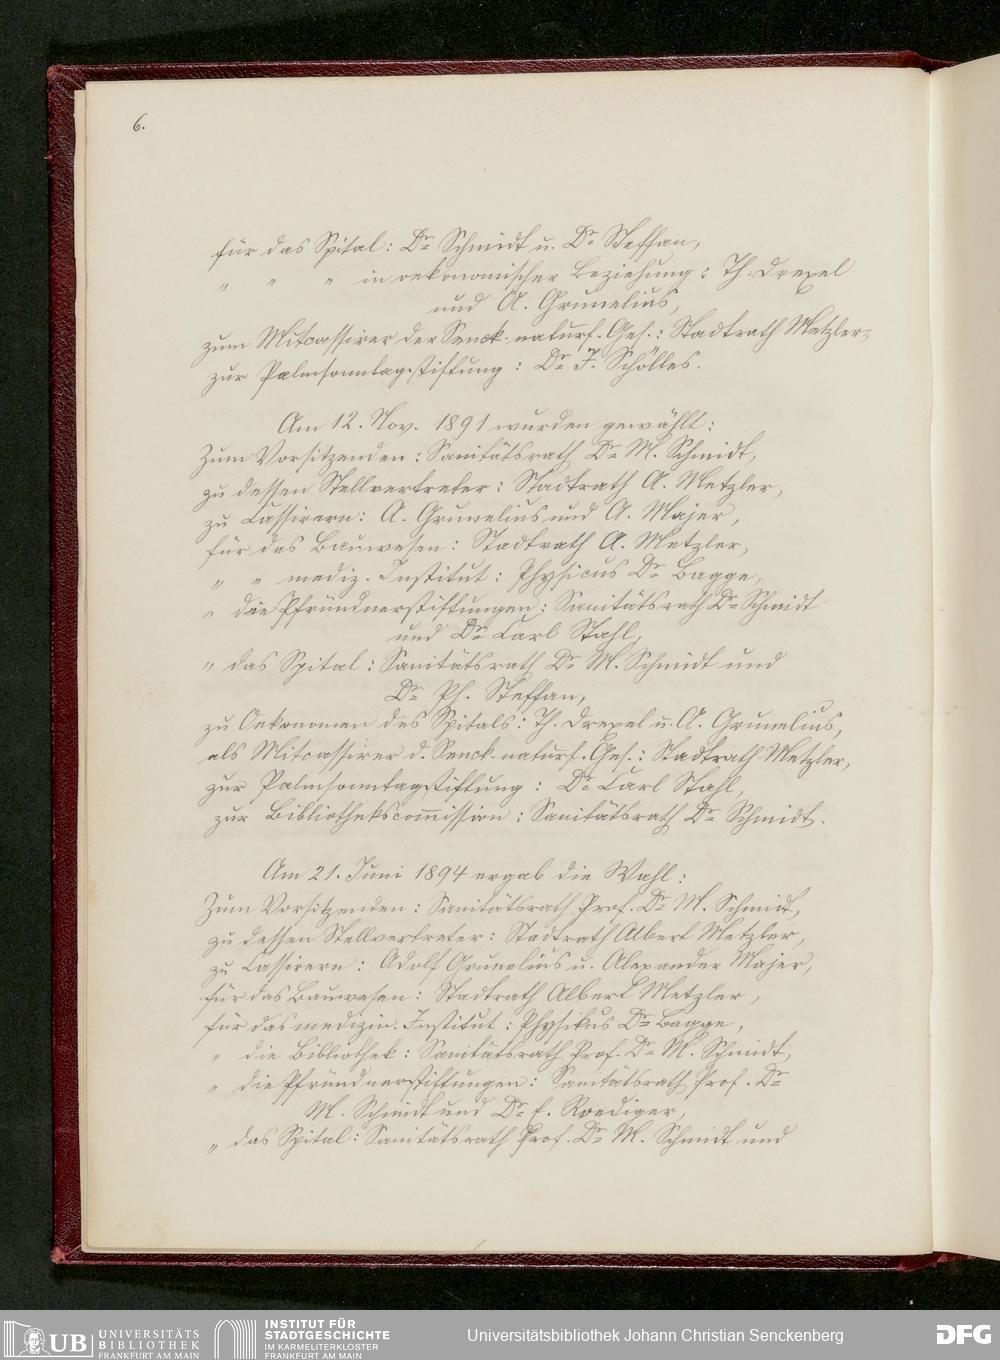 6.
für das Spital: Dr Schmidt u. Dr Steffan,
„ „ „ in oekonomischer Beziehung: Th. Drexel
und A. Grunelius,
zum Mitcassirer der Senck. naturf. Ges.: Stadtrath Metzler,
zur Palmsonntagsstiftung: Dr F. Schölles.
Am 12. Nov. 1891 wurden gewählt:
Zum Vorsitzenden: Sanitätsrath Dr M. Schmidt,
zu dessen Stellvertreter: Stadtrath A. Metzler,
zu Cassirern: A. Grunelius und A. Majer,
für das Bauwesen: Stadtrath A. Metzler,
„ „ mediz. Institut: Physicus Dr Bagge,
„ die Pfründnerstiftungen: Sanitätsrath Dr Schmidt
und Dr Carl Stahl,
„ das Spital: Sanitätsrath Dr M. Schmidt und
Dr Ph. Steffan,
zu Oekonomen des Spitals: Th. Drexel u. A. Grunelius,
als Mitcassirer d. Senck. naturf. Ges.: Stadtrath Metzler,
zur Palmsonntagsstiftung: Dr Carl Stahl,
zur Bibliothekscom̅ission: Sanitätsrath Dr Schmidt.
Am 21. Juni 1894 ergab die Wahl:
Zum Vorsitzenden: Sanitätsrath Prof. Dr M. Schmidt,
zu dessen Stellvertreter: Stadtrath Albert Metzler,
zu Cassirern: Adolf Grunelius u. Alexander Majer,
für das Bauwesen: Stadtrath Albert Metzler,
für das medizin. Institut: Physikus Dr Bagge,
„ die Bibliothek: Sanitätsrath Prof. Dr M. Schmidt,
„ die Pfründnerstiftungen: Sanitätsrath Prof. Dr
M. Schmidt und Dr E. Roediger,
„ das Spital: Sanitätsrath Prof. Dr M. Schmidt und
UB UNIVERSITÄTS
BIBLIOTHEK
FRANKFURT AM MAIN
INSTITUT FÜR
STADTGESCHICHTE
IM KARMELITERKLOSTER
FRANKFURT AM MAIN
Universitätsbibliothek Johann Christian Senckenberg
DFG